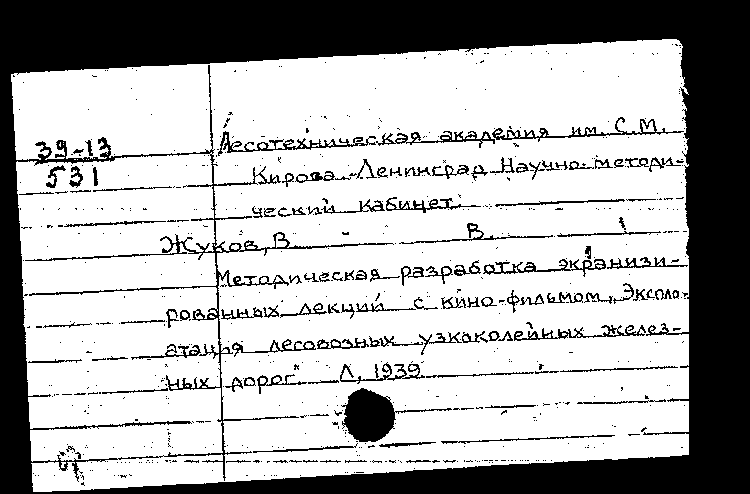 39-13
531
Лесотехническая академия им. С.М.
Кирова - Ленинград Научно-методи-
ческий кабинет.
Жуков, В. В.
Методическая разработка экранизи-
рованных лекций с кино-фильмом „Экспло-
атация лесовозных узкоколейных желез-
ных дорог". Л, 1939